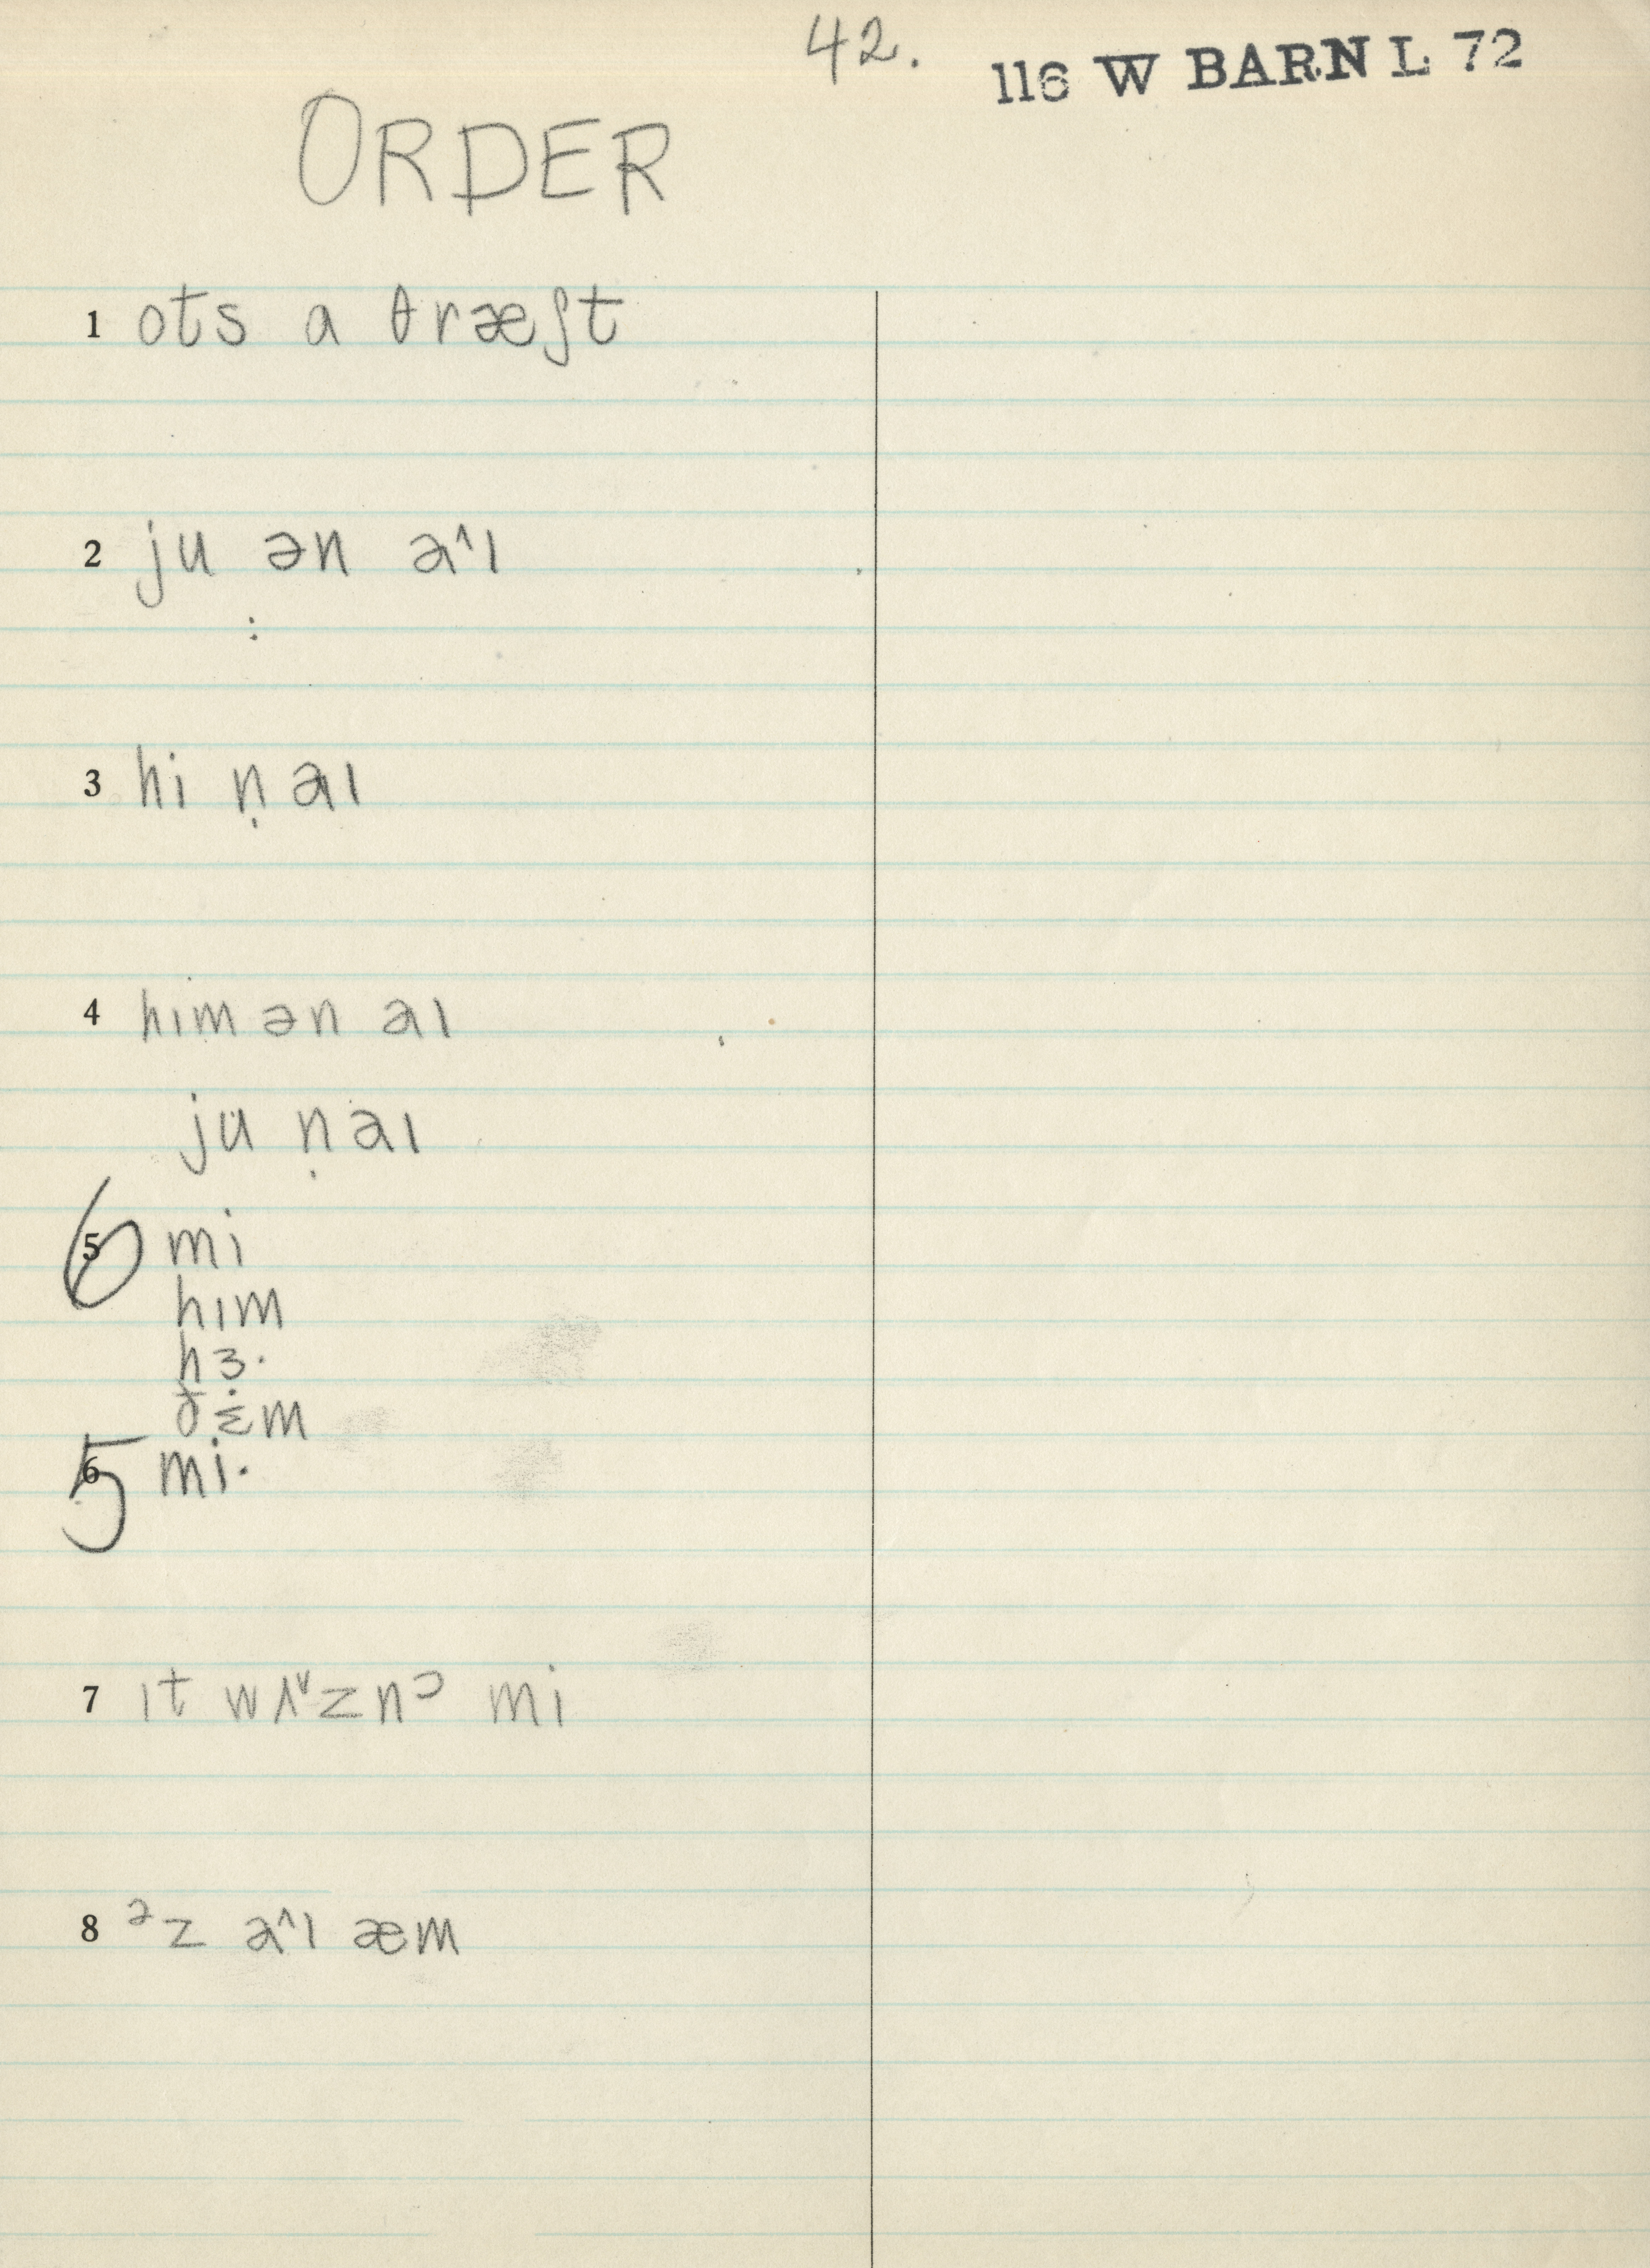 42.
116 W BARN L 72
ORDER
1 ots a θræʃt
2 ju ən a^ɪ
3 hi n̩ aɪ
4 hɪm ən aɪ
ju n̩ aɪ
6 mi
hɪm
hɜ·
ðɛm
5 mi·
7 ɪt wʌᵛznᵓ mi
8 ᵊz a^ɪ æm